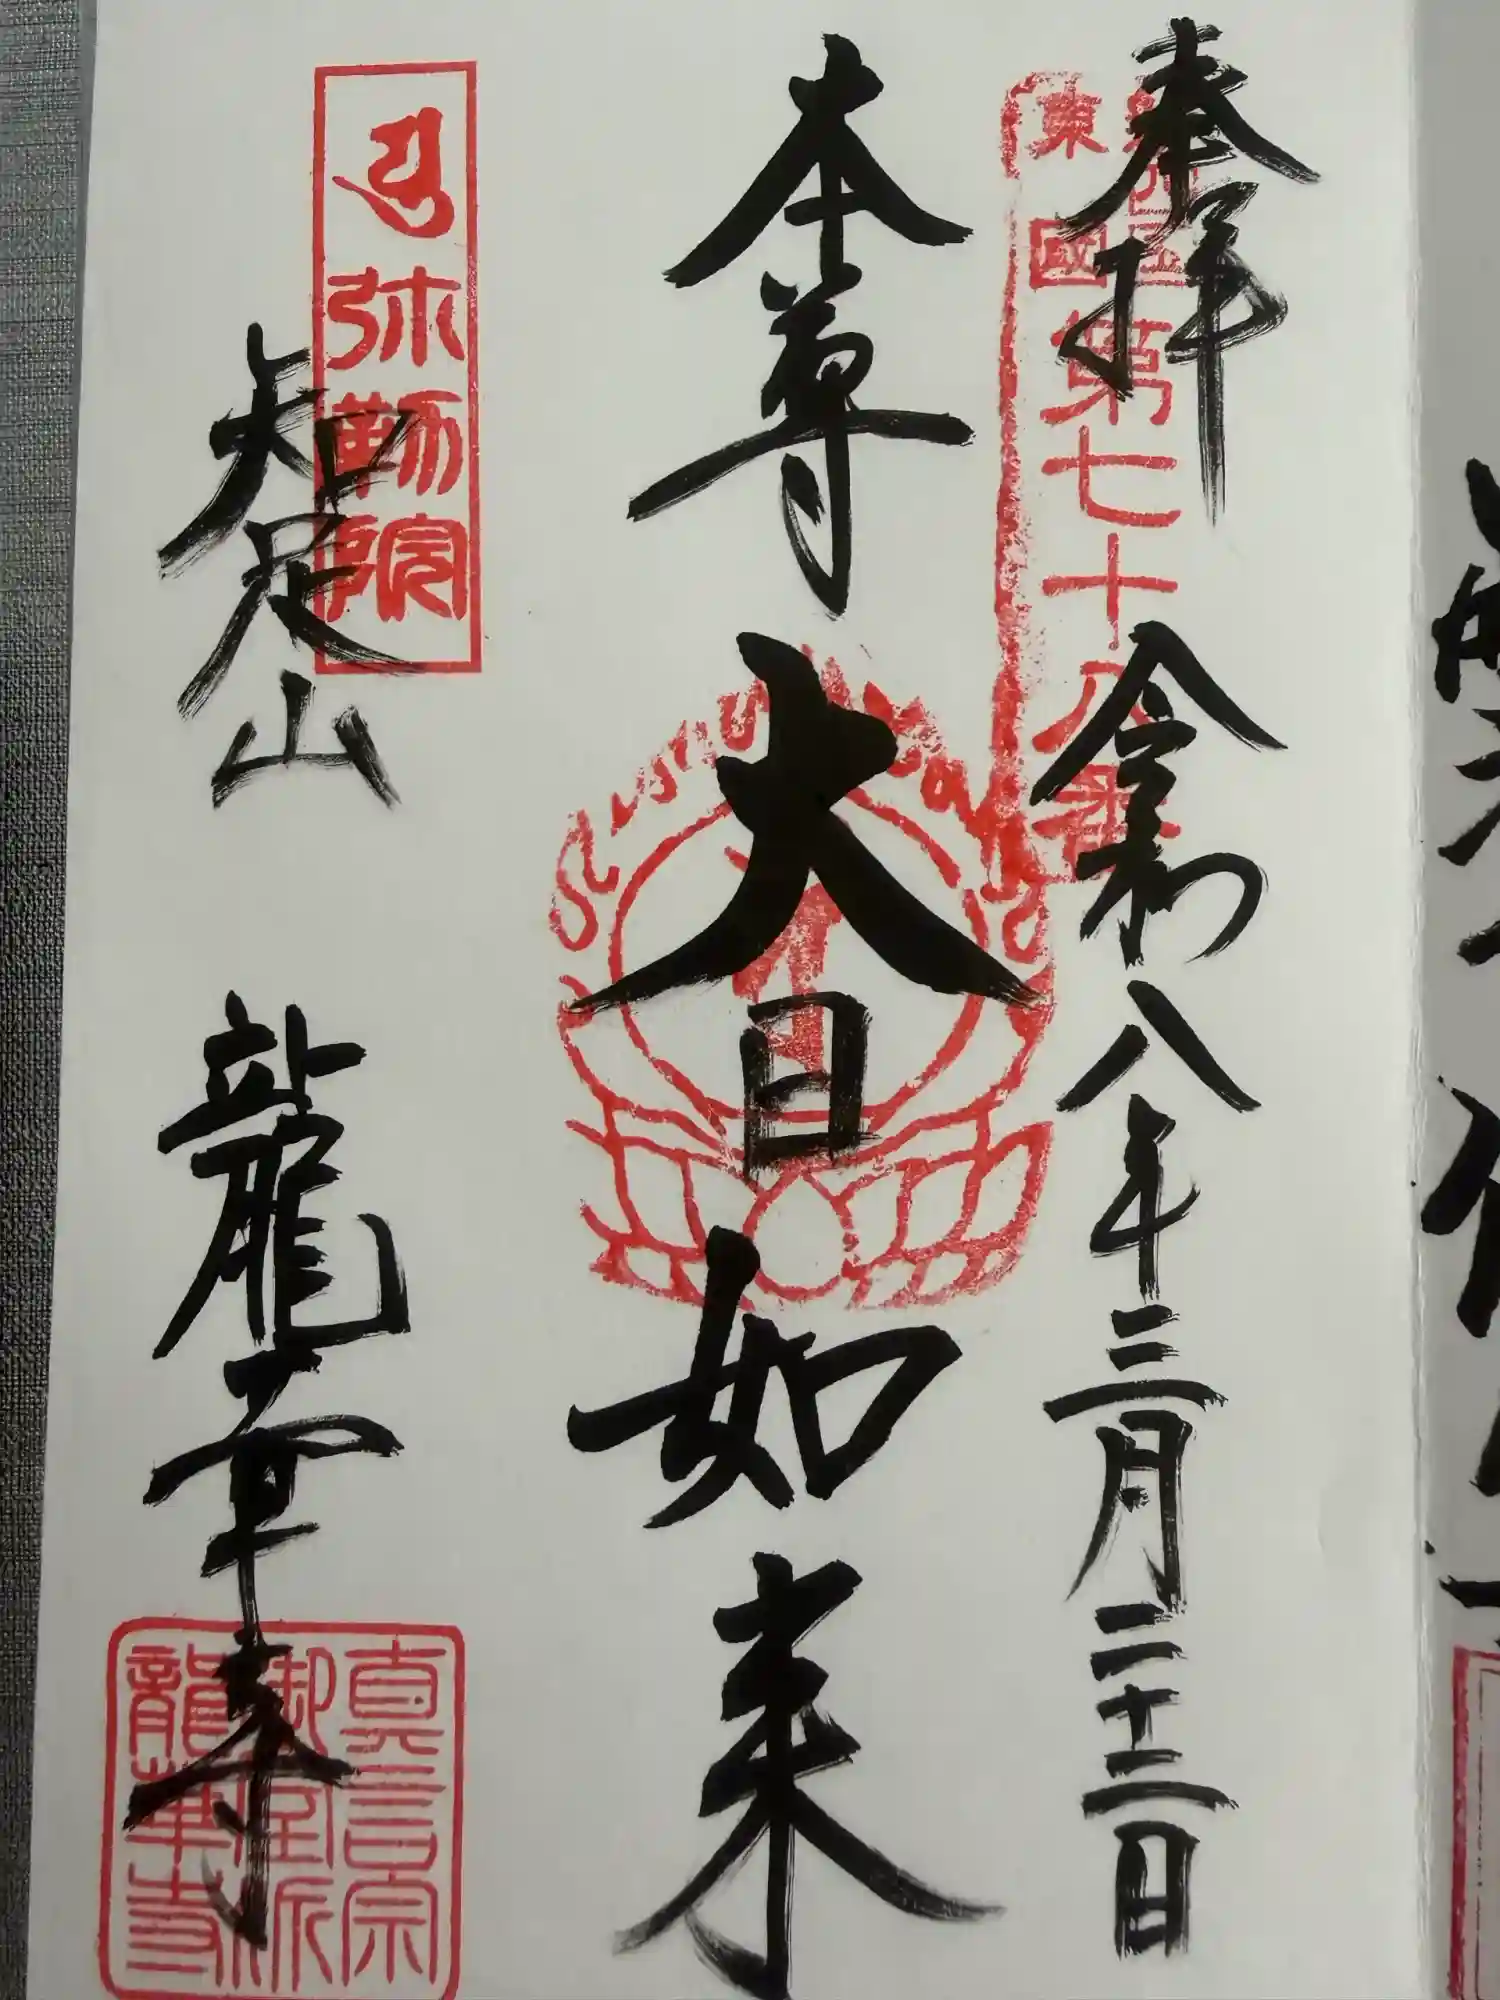 奉拝 令和八年三月二十二日
東國
第七十八番
本尊 大日如来
弥勒院
知足山 龍華寺
真言宗
御室派
龍華寺